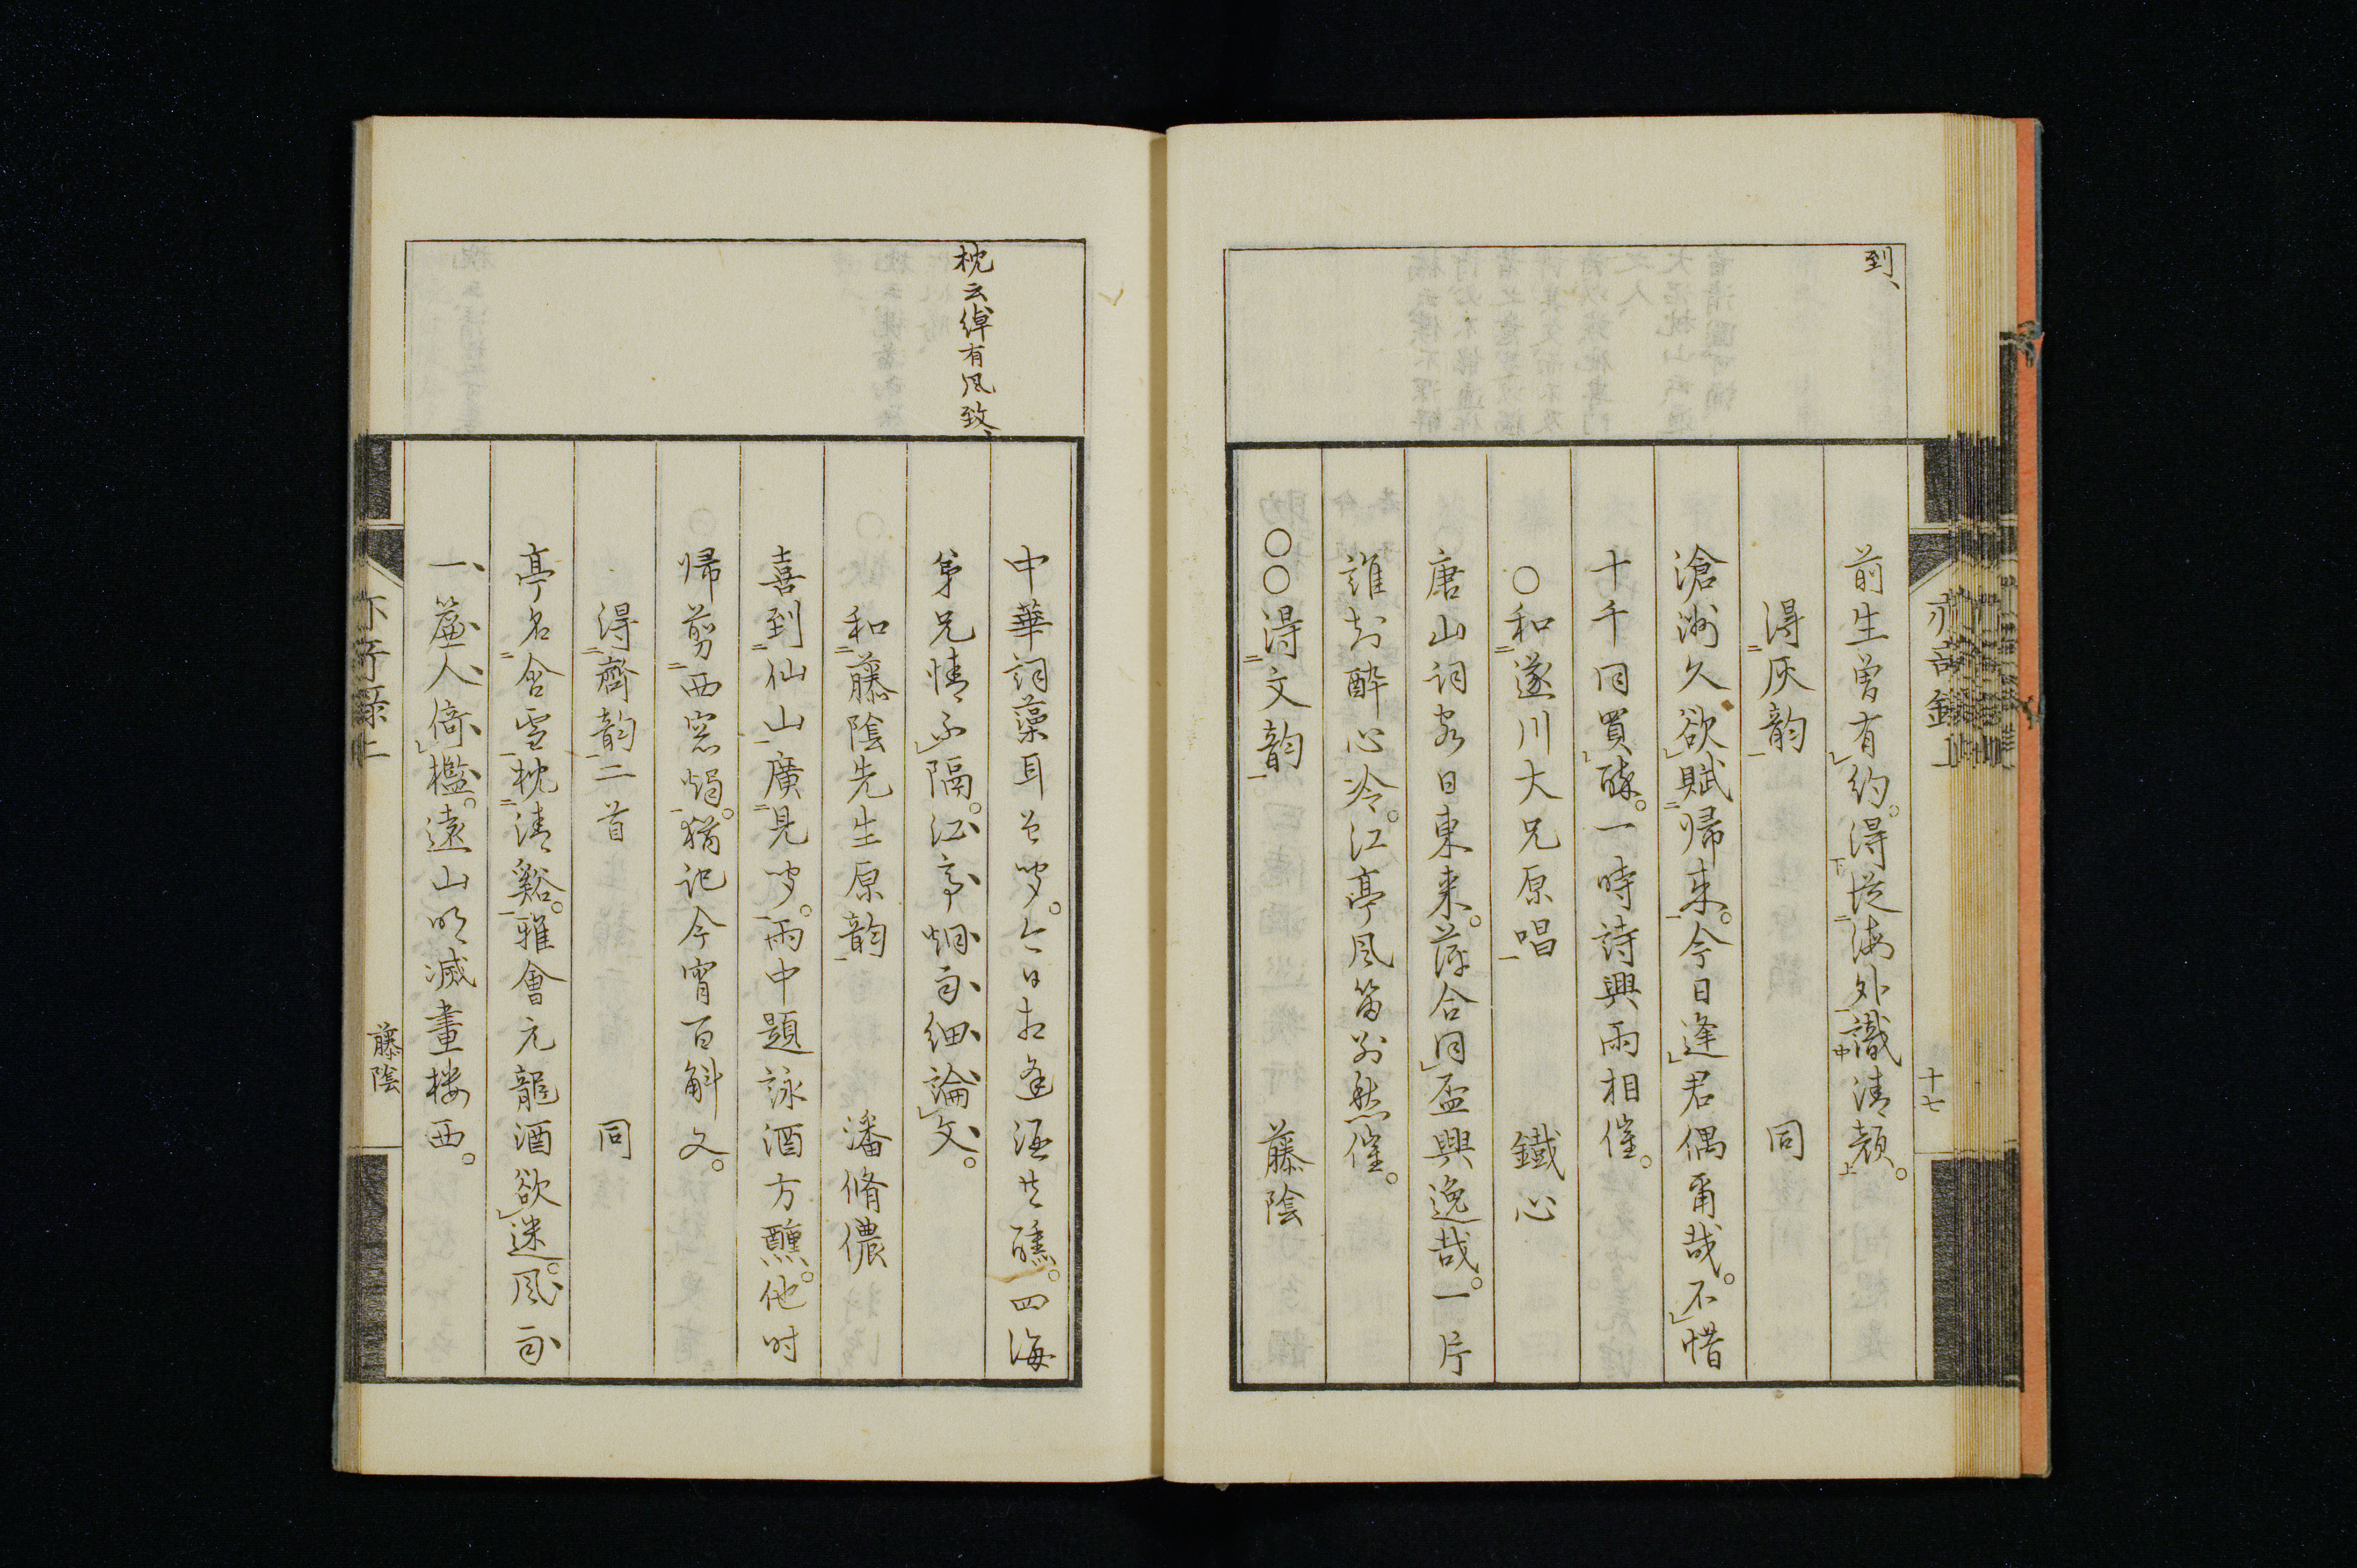 到、
前生曽有約。得從海外識清顔。
得灰韵　同
滄洲久欲賦帰来。今日逢君偶爾哉。不惜
十千同買酔。一時詩興雨相催。
〇和遂川大兄原唱　鐵心
唐山詞客日東来。萍合同盃興逸哉。一片
誰知酔心冷。江亭風笛别愁催。
〇〇得文韵　藤陰
十七
枕云綽有風致、
中華詞藻耳曽聞。今日相逢酒共醺。四海
弟兄情不隔。江亭烟雨細論文。
和藤陰先生原韵　潘脩儂
喜到仙山廣見聞。雨中題詠酒方醺。他时
帰剪西窓燭。猶記今宵百斛文。
得齊韵二首　同
亭名含雪枕清谿。雅會元龍酒欲迷。風雨
一簾人倚檻。遠山明滅畫楼西。
藤陰